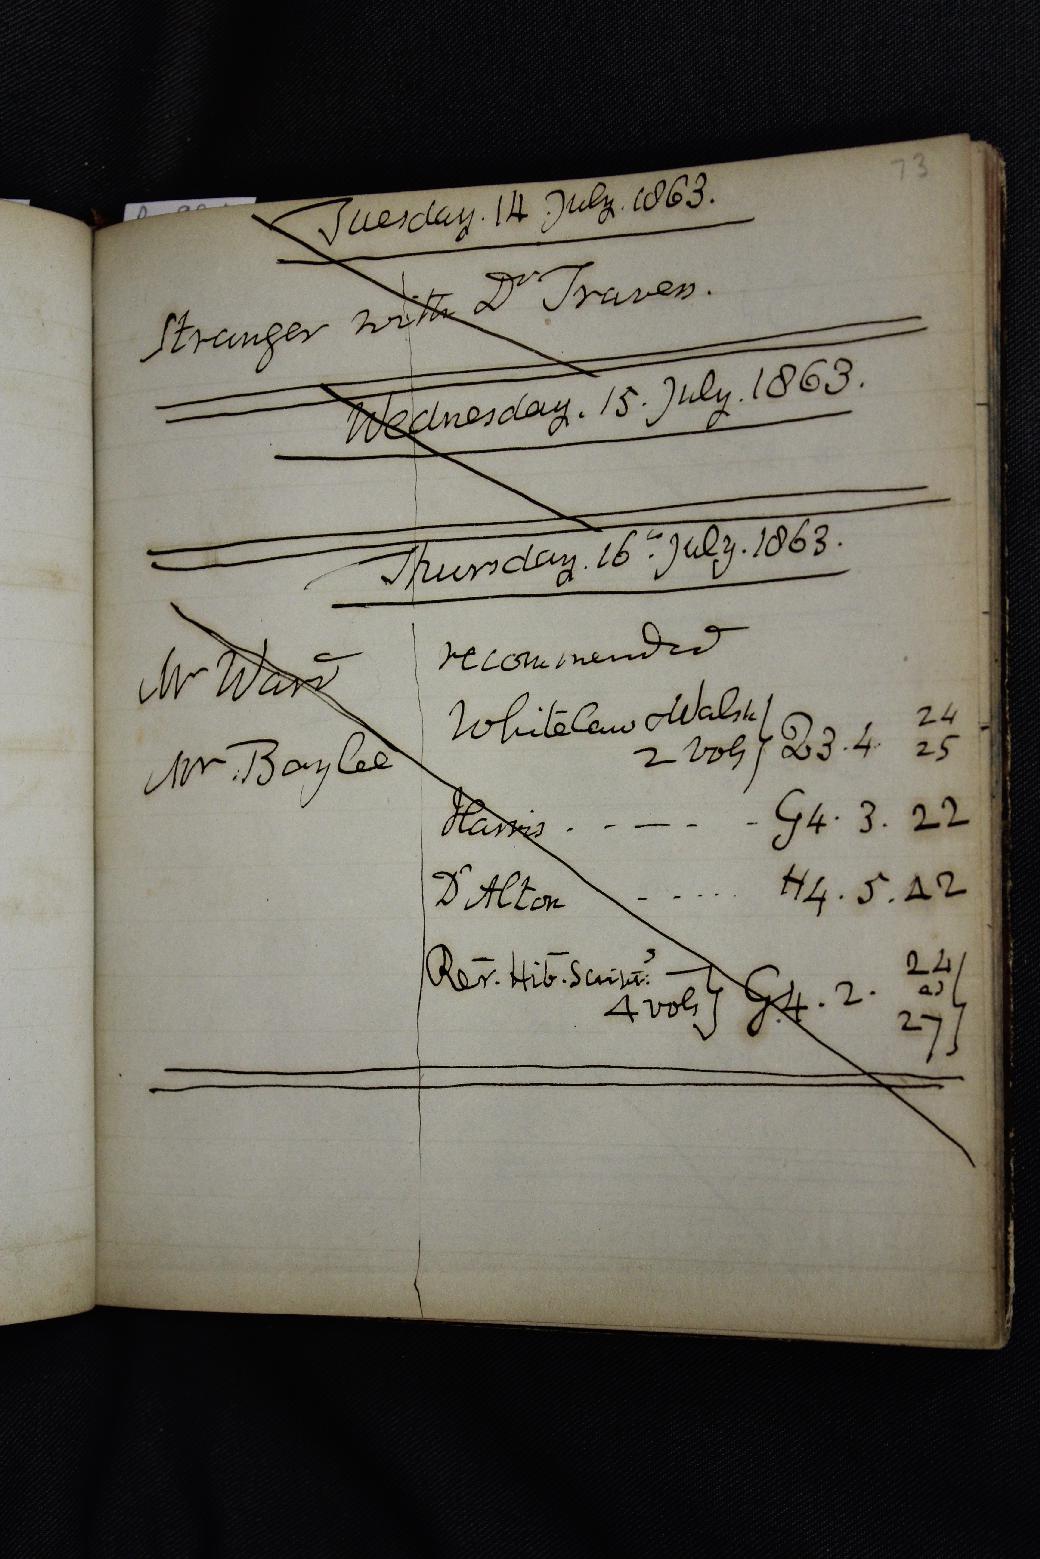 73
Tuesday. 14 July. 1863.
Stranger with Dr Travers.
Wednesday. 15. July. 1863.
Thursday. 16th July. 1863.
Mr Ward recommended
Whitelaw & Walsh
2 vols } 23.4. 24 25
Mr. Baylee
Harris . - - - - - G4. 3. 22
D'Alton - - . . . . H4. 5. 12
Rer. Hib. Script.s
4 vols } G.4. 2. 24 27 }